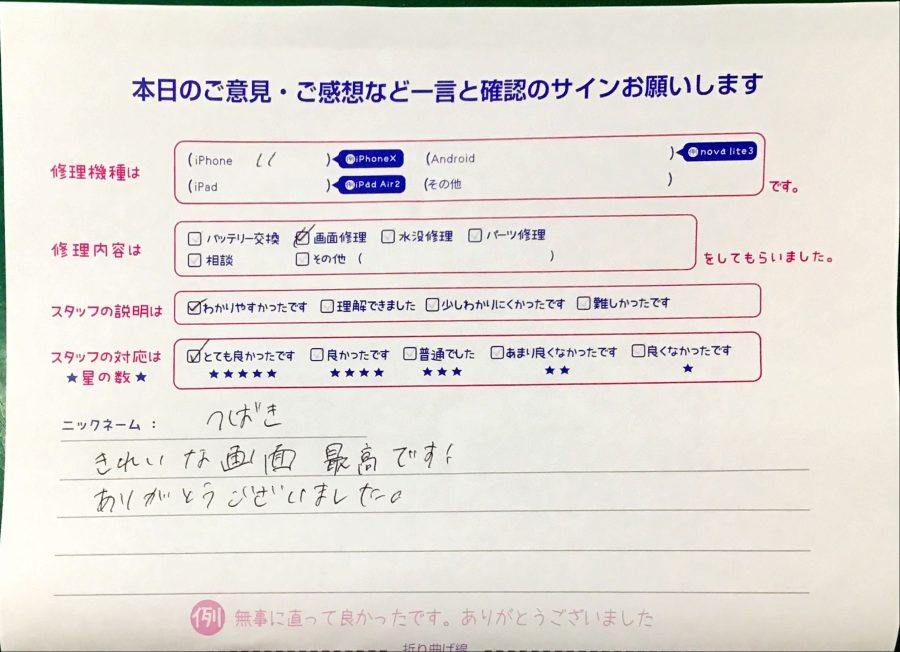 本日のご意見・ご感想など一言と確認のサインお願いします
修理機種は (iPhone 11 ) 例iPhoneX (Android ) 例nova lite3
(iPad ) 例iPad Air2 (その他 ) です。
修理内容は バッテリー交換 画面修理 水没修理 パーツ修理
相談 その他 ( ) をしてもらいました。
スタッフの説明は わかりやすかったです 理解できました 少しわかりにくかったです 難しかったです
スタッフの対応は とても良かったです 良かったです 普通でした あまり良くなかったです 良くなかったです
★星の数★ ★★★★★ ★★★★ ★★★ ★★ ★
ニックネーム： つばき
きれいな画面 最高です!
ありがとうございました。
例 無事に直って良かったです。ありがとうございました
折り曲げ線